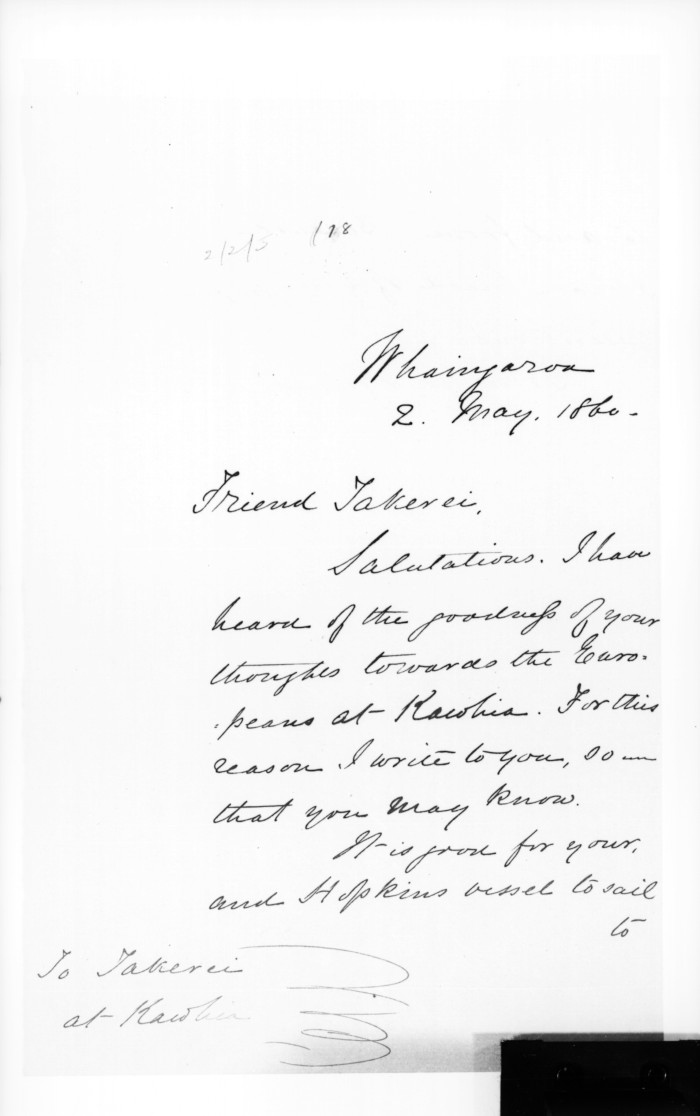 2/2/5 178
Whaingaroa
2. May. 1860-
Friend Takerei,
Salutations. I have
heard of the goodness of your
thoughts towards the Euro=
=peans at Kawhia. For this
reason I write to you, so
that you may know.
It is good for your,
and Hopkins vessel to sail
to
To Takerei
at Kawhia